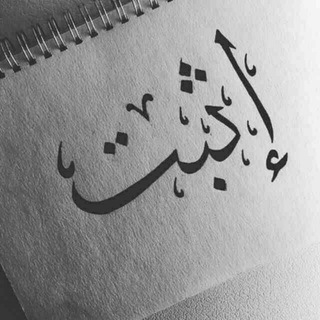 إثبت